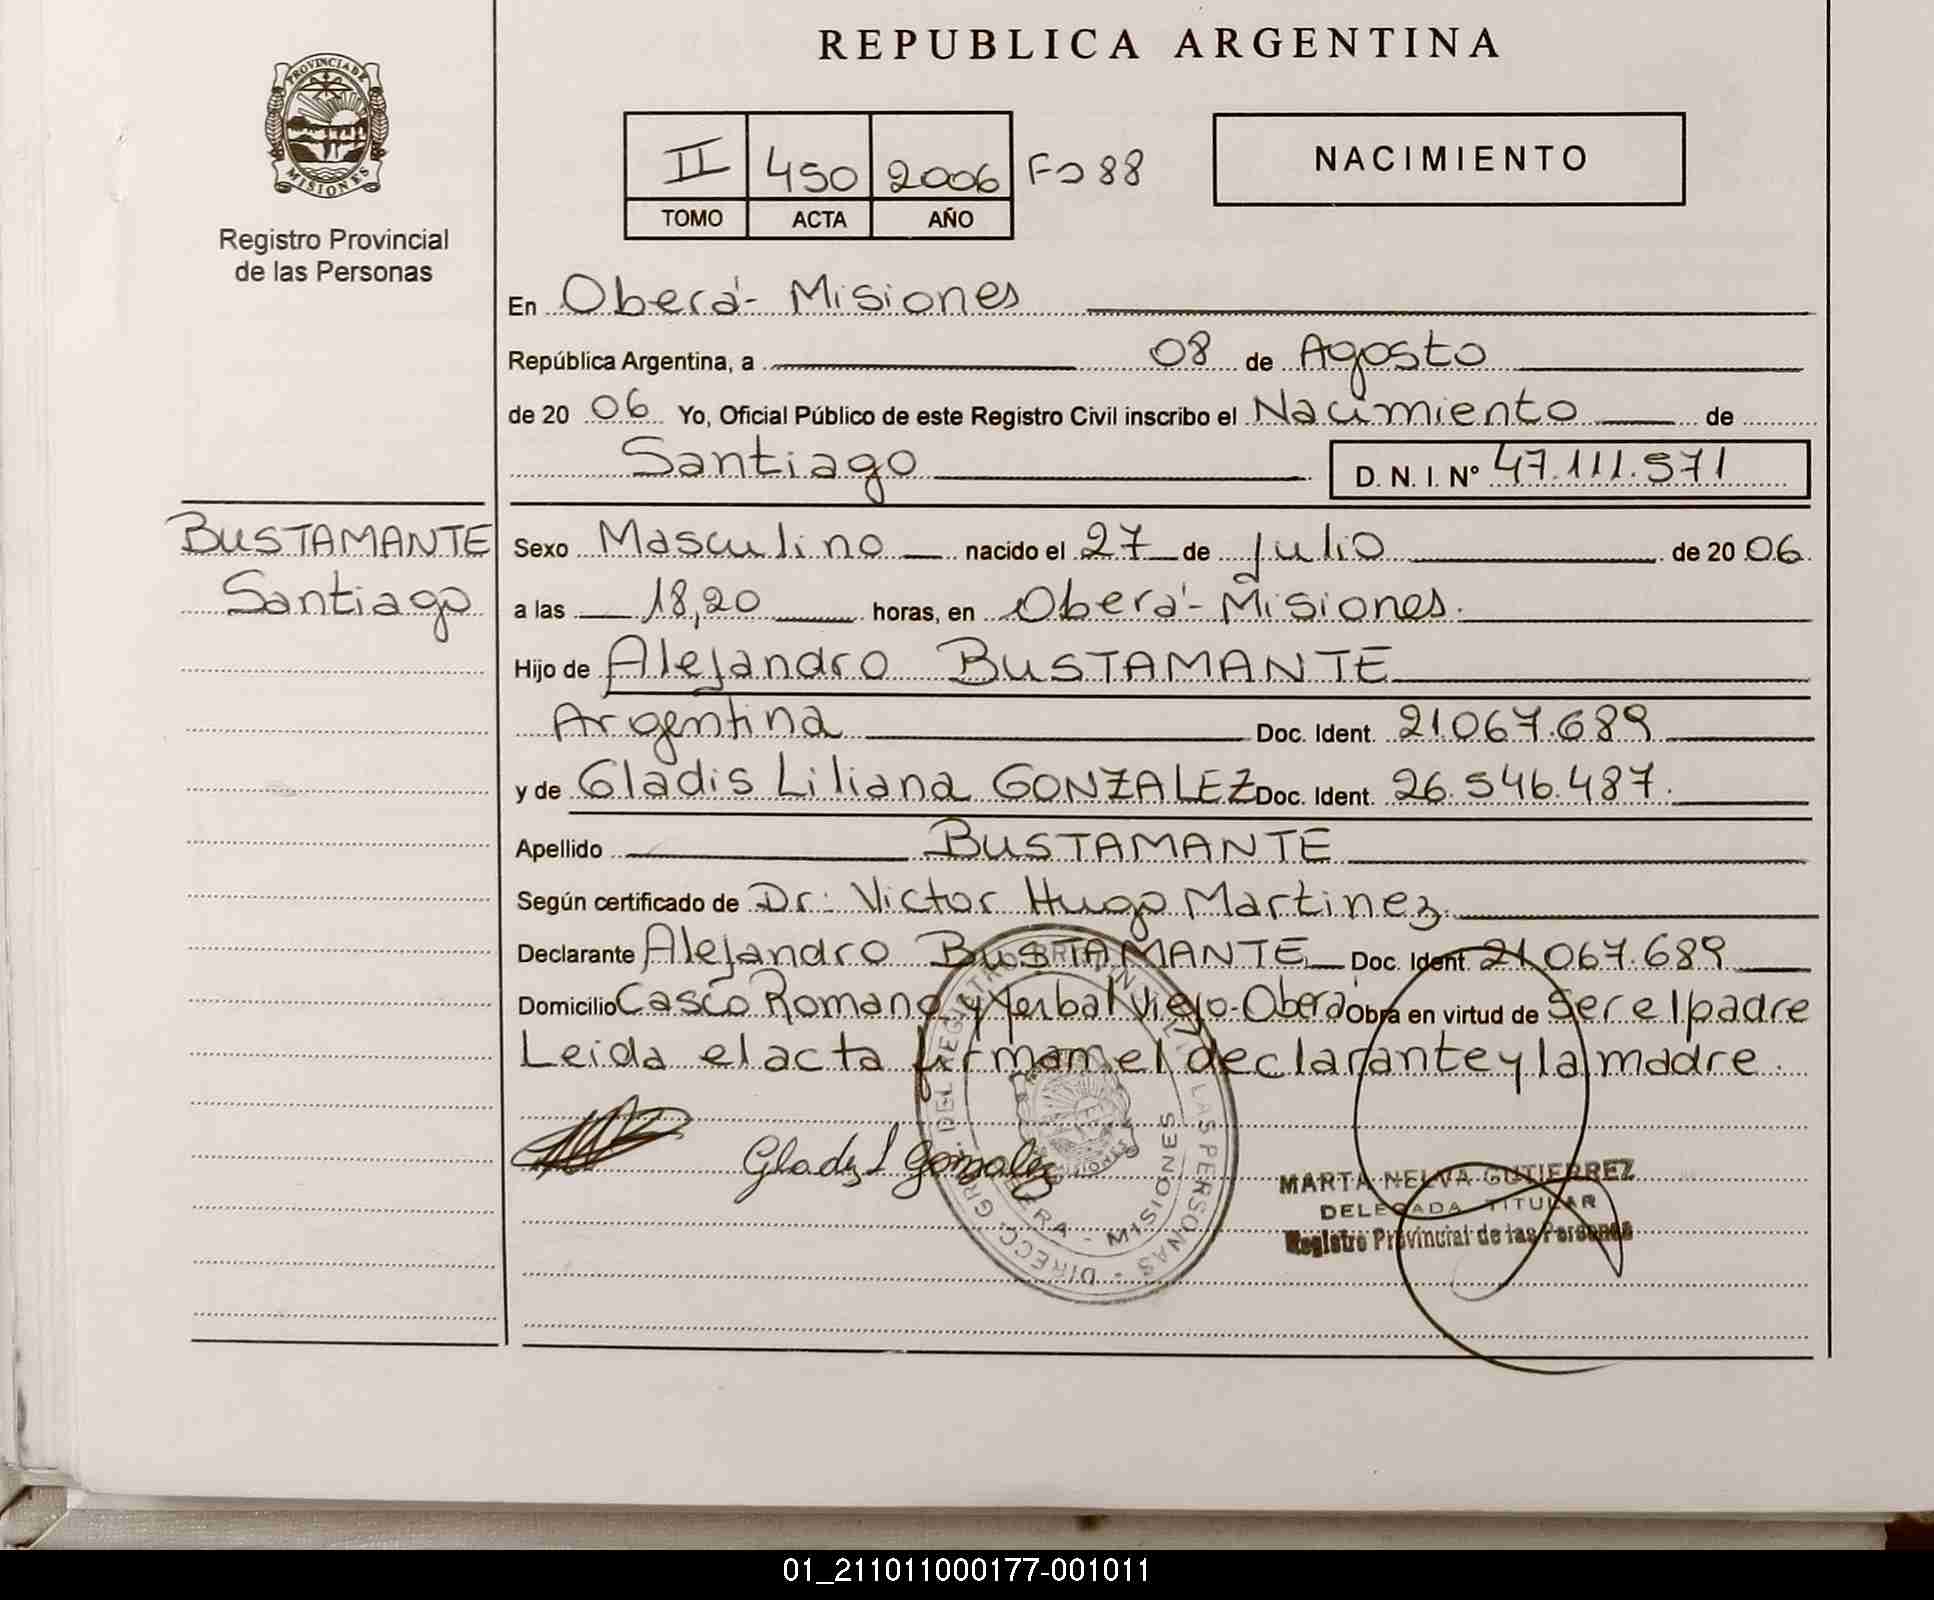 REPUBLICA ARGENTINA
PROVINCIA DE
MISIONES
Registro Provincial
de las Personas
II 450 2006 Fo 88
TOMO ACTA AÑO
NACIMIENTO
En Oberá - Misiones
República Argentina, a 08 de Agosto
de 20 06 Yo, Oficial Público de este Registro Civil inscribo el Nacimiento de
Santiago D. N. I. Nº 47.111.571
BUSTAMANTE
Santiago
Sexo Masculino nacido el 27 de Julio de 20 06.
a las 18,20 horas, en Oberá - Misiones.
Hijo de Alejandro BUSTAMANTE
Argentina Doc. Ident. 21.067.689
y de Gladis Liliana GONZALEZ Doc. Ident. 26.546.487.
Apellido BUSTAMANTE
Según certificado de Dr: Victor Hugo Martinez.
Declarante Alejandro BUSTAMANTE Doc. Ident. 21.067.689
Domicilio Casco Romano y Yerbal Viejo - Oberá Obra en virtud de Ser el padre
Leida el acta firman el declarante y la madre.
Gladys L Gonzalez
MISIONES
MARTA NELVA GUTIERREZ
DELEGADA TITULAR
Registro Provincial de las Personas
01_211011000177-001011